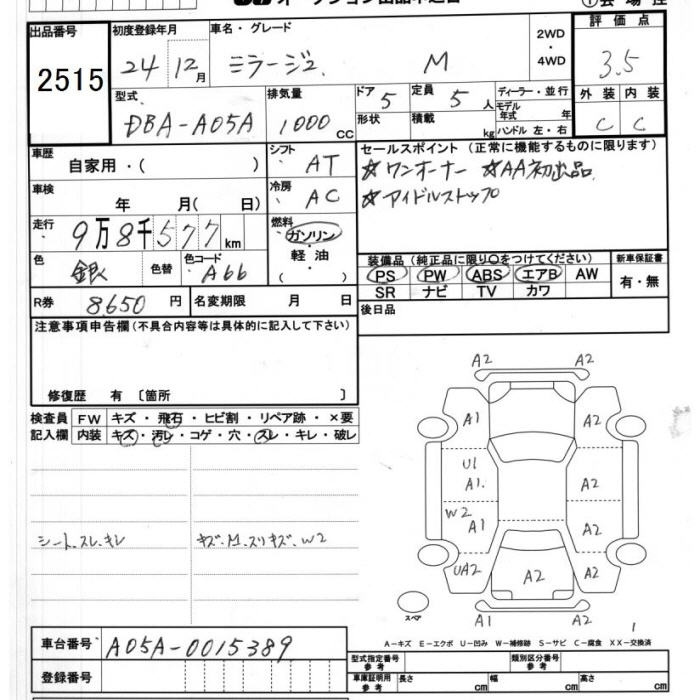 オークション出品申込書
出品番号 初度登録年月 車名・グレード 2WD・4WD 評価点
2515 24 12月 ミラージュ M 3.5
型式 排気量 ドア 5 定員 5人 ディーラー・並行 外装 内装
DBA-A05A 1000cc 形状 積載 kg モデル年式 年 C C
ハンドル 左・右
車歴 シフト AT セールスポイント (正常に機能するものに限ります)
自家用・( ) ☆ワンオーナー ☆AA初出品
車検 冷房 AC ☆アイドルストップ
年 月( 日)
走行 9万8千577km 燃料 ガソリン・軽油・( )
色 銀 色替 色コード A66 装備品 (純正品に限り〇をつけてください) 新車保証書
PS PW ABS エアB AW 有・無
SR ナビ TV カワ
R券 8,650円 名変期限 月 日 後日品
注意事項申告欄 (不具合内容等は具体的に記入して下さい)
修復歴 有 〔箇所 〕
検査員 FW キズ・飛石・ヒビ割・リペア跡・×要
記入欄 内装 キズ・汚レ・コゲ・穴・スレ・キレ・破レ
シート、スレ、キレ キズ、M、スリキズ、W2
A2 A2
A1 A2
U1
A1. A2
W2
A1 A2
UA2 A2 A2
スペア A1 A2
1
A-キズ E-エクボ U-凹み W-補修跡 S-サビ C-腐食 XX-交換済
車台番号 A05A-0015389 型式指定番号参考 類別区分番号参考
登録番号 車庫証明用参考 長さ cm 幅 cm 高さ cm